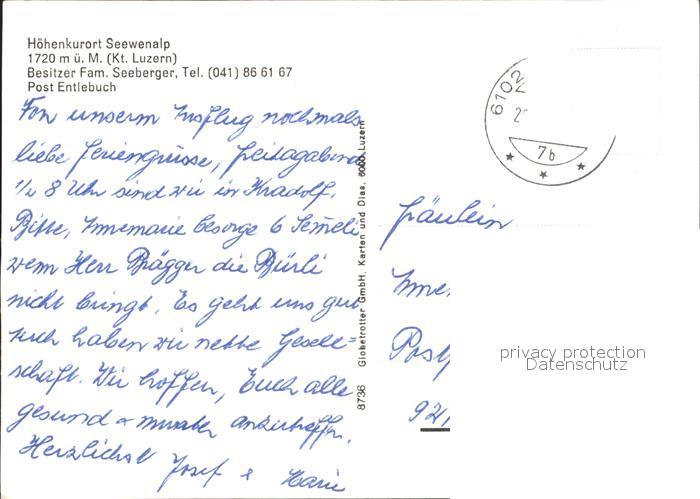 Höhenkurort Seewenalp
1720 m ü. M. (Kt. Luzern)
Besitzer Fam. Seeberger, Tel. (041) 86 61 67
Post Entlebuch
Von unserm Ausflug nochmals
liebe Feriengrüsse, Freitagabend
1/2 8 Uhr sind wir in Kradolf.
Bitte, Annemarie besorge 6 Semeli
wenn Herr Brägger die Bürli
nicht bringt. Es geht uns gut
auch haben wir nette Gesell=
schaft. Wir hoffen, Euch alle
gesund & munter anzutreffen.
Herzlichst Josef & Marie
8736 Globetrotter GmbH, Karten und Dias, 6000 Luzern
6102
2
7b
Fräulein
Anne
Post
921
privacy protection
Datenschutz